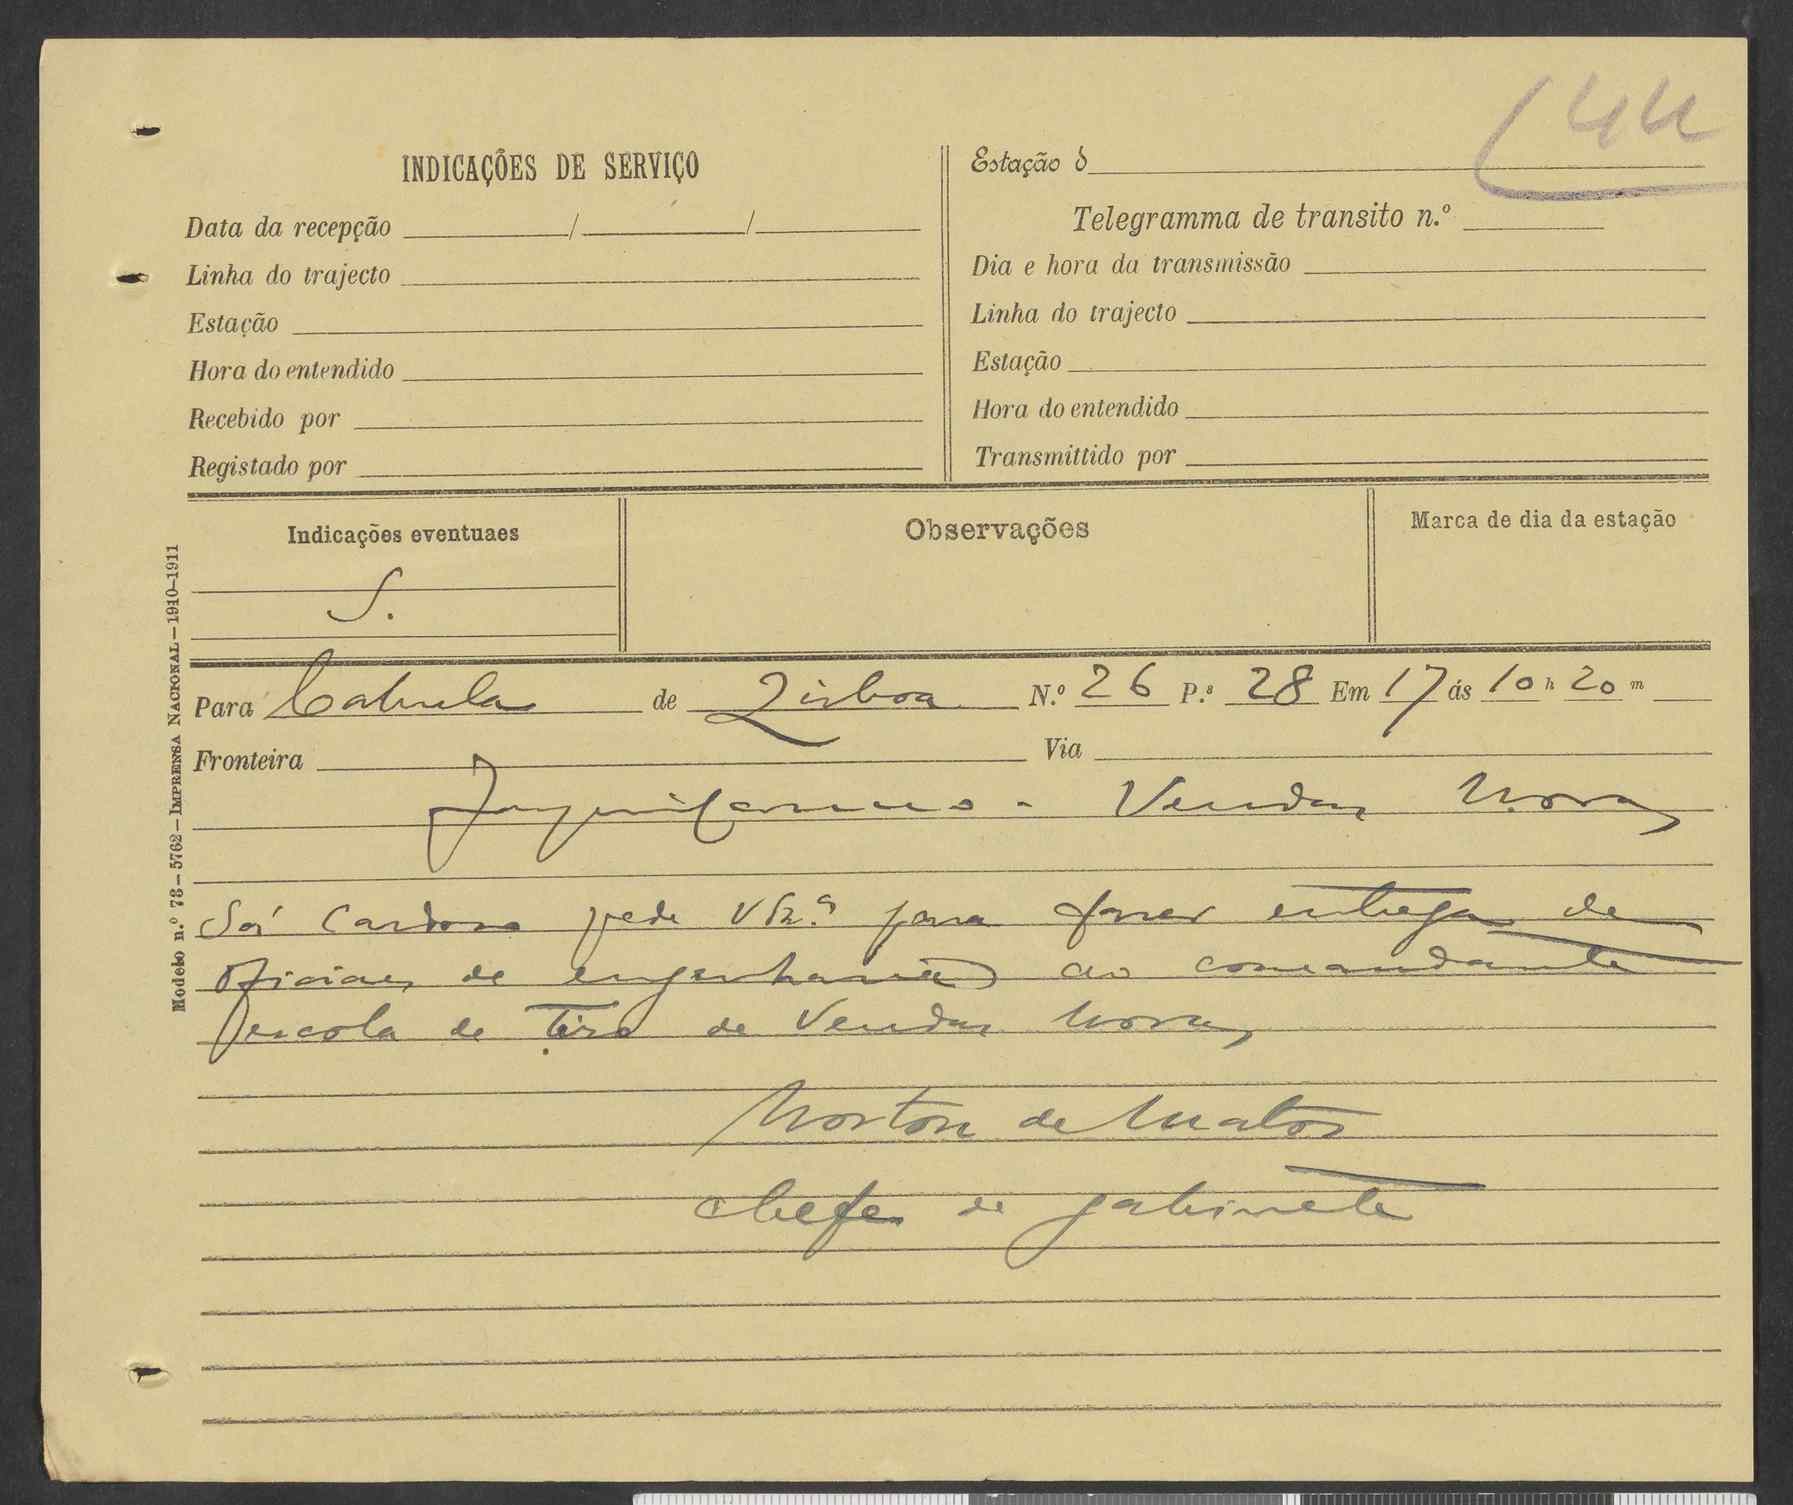 44
INDICAÇÕES DE SERVIÇO
Data da recepção / /
Linha do trajecto
Estação
Hora do entendido
Recebido por
Registado por
Estação d
Telegramma de transito n.º
Dia e hora da transmissão
Linha do trajecto
Estação
Hora do entendido
Transmittido por
Indicações eventuaes
S.
Observações
Marca de dia da estação
Modelo n.º 73 – 5762 – IMPRENSA NACIONAL – 1910-1911
Para Cabrela de Lisboa N.º 26 P.ˢ 28 Em 17 ás 10 h 20 m
Fronteira Via
Vendas Novas
Sá Cardoso pede V Ex.ª para fazer entrega de
oficiaes de engenharia ao comandante
escola de Tiro de Vendas Novas
Norton de Matos
chefe de gabinete